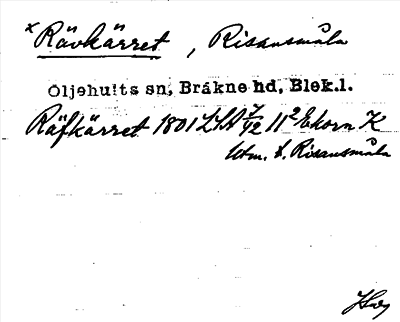 × Rävkärret, Risansmåla
Öljehults sn, Bräkne hd, Blek.l.
Räfkärret 1801 LSA 7/12 11² Ekorn K
Utm. t. Risansmåla